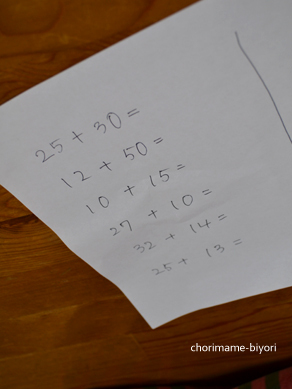 25 + 30 =
12 + 50 =
10 + 15 =
27 + 10 =
32 + 14 =
25 + 13 =
chorimame-biyori